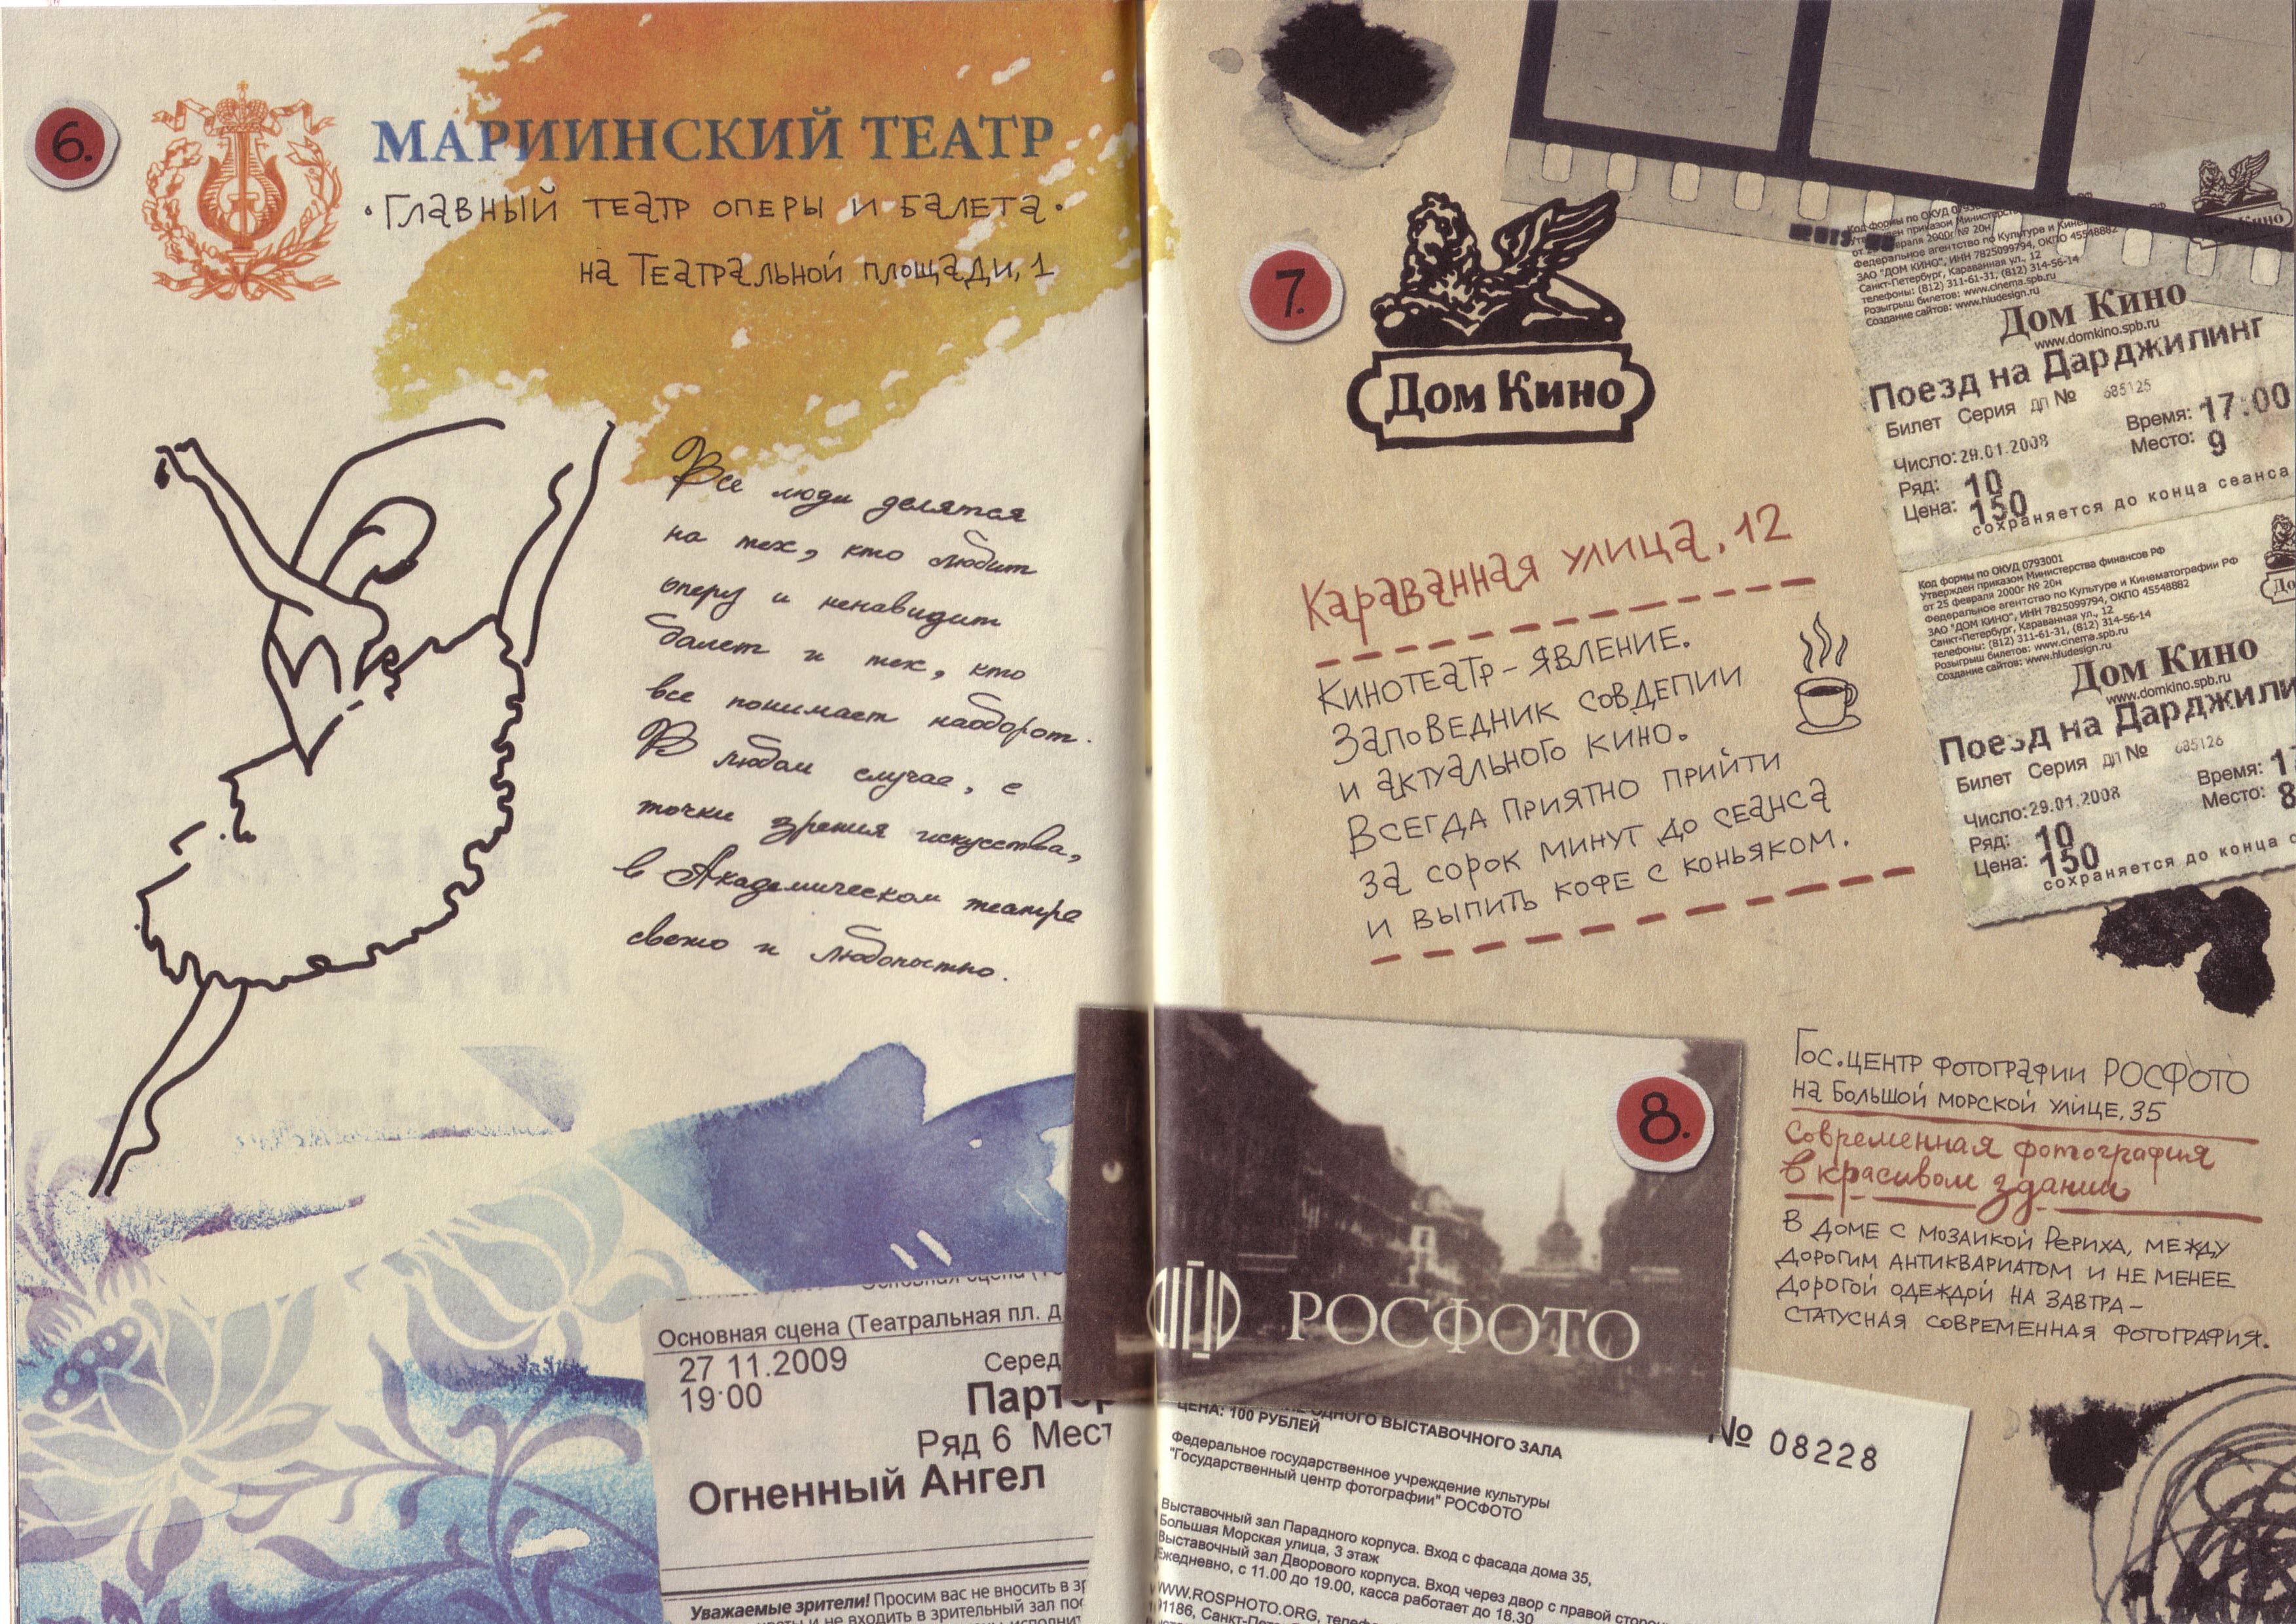 6.
МАРИИНСКИЙ ТЕАТР
·Главный театр оперы и балета·
на Театральной площади, 1
Все люди делятся
на тех, кто любит
оперу и ненавидит
балет и тех, кто
все понимает наоборот.
В любом случае, с
точки зрения искусства,
в Академическом театре
свежо и любопытно.
Основная сцена (Театральная пл. д
27 11.2009
Серед
19:00
Партер
Ряд 6 Мест
Огненный Ангел
Уважаемые зрители! Просим вас не вносить в зр
и не входить в зрительный зал пос
7.
Дом Кино
Караванная улица, 12
Кинотеатр – явление.
Заповедник совдепии
и актуального кино.
Всегда приятно прийти
за сорок минут до сеанса
и выпить кофе с коньяком.
Код формы по ОКУД
от февраля 2000г № 20н
Федеральное агентство по Культуре и
ЗАО "ДОМ КИНО", ИНН 7825099794, ОКПО 45548882
Санкт-Петербург, Караванная ул., 12
телефоны: (812) 311-61-31, (812) 314-56-14
Розыгрыш билетов: www.cinema.spb.ru
Создание сайтов: www.hludesign.ru
Дом Кино
www.domkino.spb.ru
Поезд на Дарджилинг
Билет Серия дп № 685125
Время: 17:00
Число: 29.01.2008
Место: 9
Ряд: 10
Цена: 150
сохраняется до конца сеанса
Код формы по ОКУД 0793001
Утвержден приказом Министерства финансов РФ
от 25 февраля 2000г № 20н
Федеральное агентство по Культуре и Кинематографии РФ
ЗАО "ДОМ КИНО", ИНН 7825099794, ОКПО 45548882
Санкт-Петербург, Караванная ул., 12
телефоны: (812) 311-61-31, (812) 314-56-14
Розыгрыш билетов: www.cinema.spb.ru
Создание сайтов: www.hludesign.ru
Дом Кино
www.domkino.spb.ru
Поезд на Дарджили
Билет Серия дп № 685126
Время: 1
Число: 29.01.2008
Место: 8
Ряд: 10
Цена: 150
сохраняется до конца с
8.
РОСФОТО
Гос.центр фотографии РОСФОТО
на Большой морской улице, 35
Современная фотография
в красивом здании
В доме с мозаикой Рериха, между
дорогим антиквариатом и не менее
дорогой одеждой на завтра –
статусная современная фотография.
ОДНОГО ВЫСТАВОЧНОГО ЗАЛА
ЦЕНА: 100 РУБЛЕЙ
№ 08228
Федеральное государственное учреждение культуры
"Государственный центр фотографии" РОСФОТО
Выставочный зал Парадного корпуса. Вход с фасада дома 35,
Большая Морская улица, 3 этаж
Выставочный зал Дворового корпуса. Вход через двор с правой сторон
Ежедневно, с 11.00 до 19.00, касса работает до 18.30
WWW.ROSPHOTO.ORG, телеф
91186, Санкт-Пет